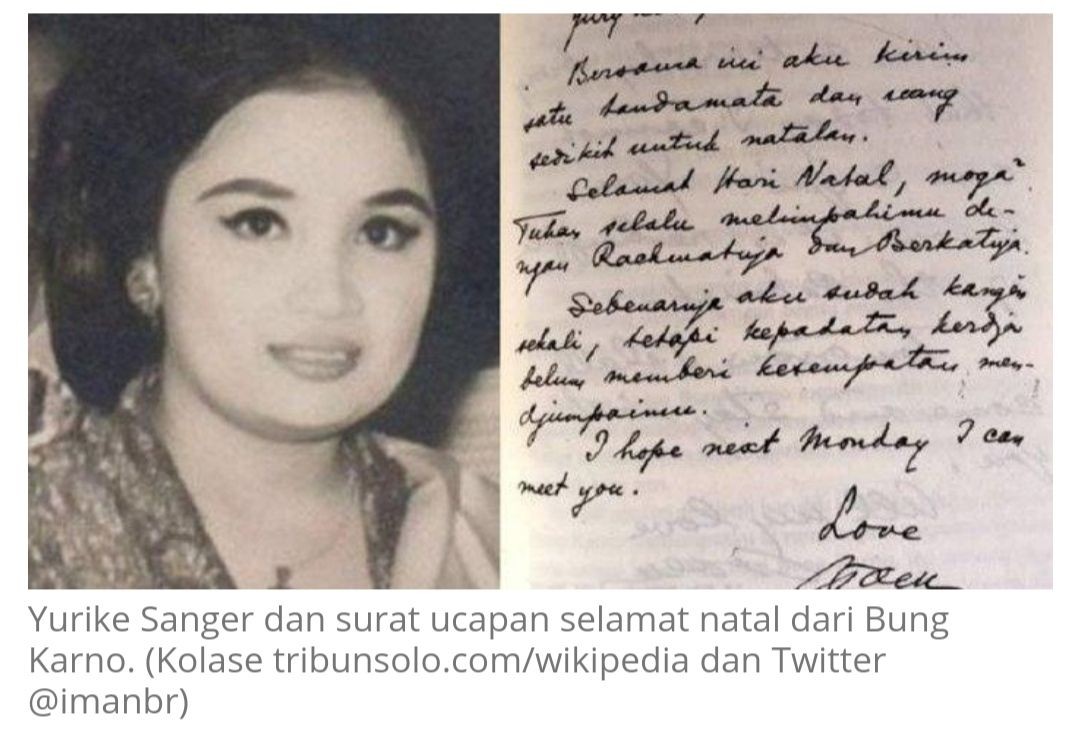 Bersama ini aku kirim
satu tandamata dan uang
sedikit untuk natalan.
Selamat Hari Natal, moga²
Tuhan selalu melimpahimu de-
ngan Rachmatnja dan Berkatnja.
Sebenarnja aku sudah kangen
sekali, tetapi kepadatan kerdja
belum memberi kesempatan men-
djumpaimu.
I hope next Monday I can
meet you.
Love
Yurike Sanger dan surat ucapan selamat natal dari Bung
Karno. (Kolase tribunsolo.com/wikipedia dan Twitter
@imanbr)